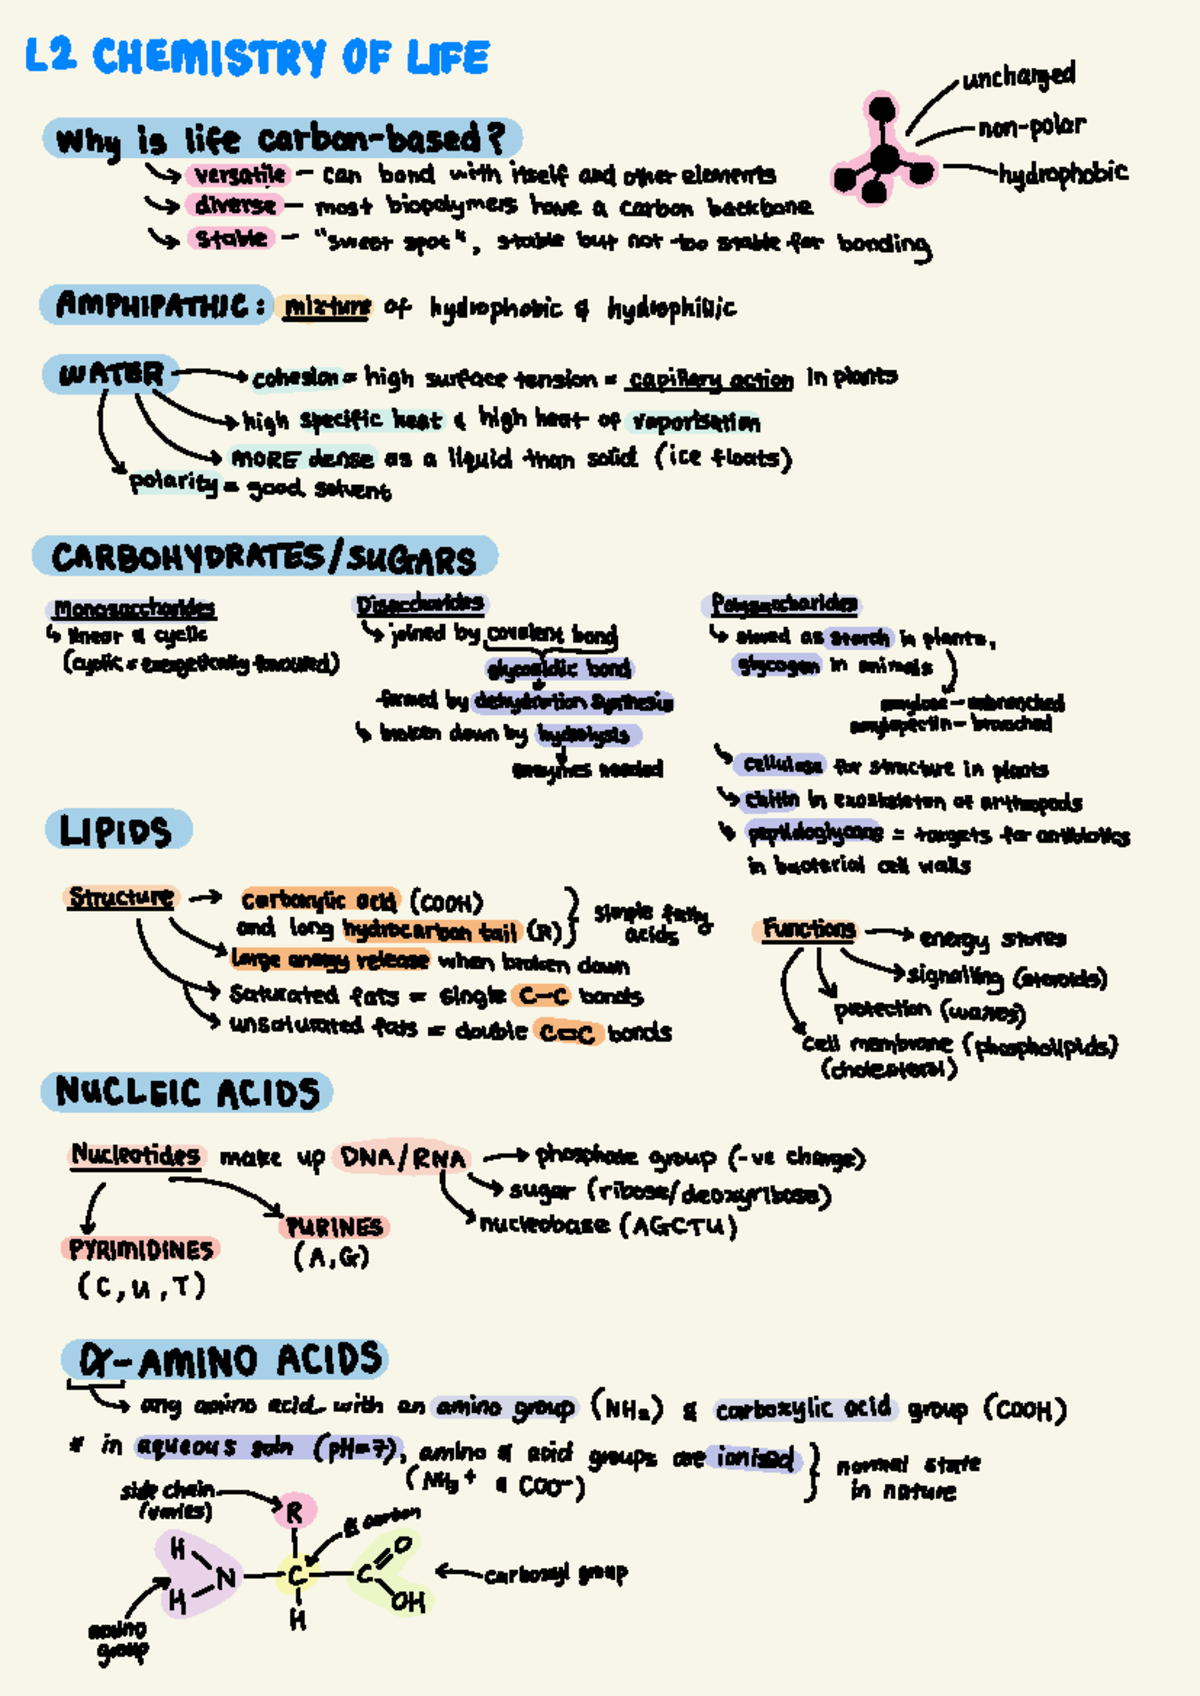 L2 CHEMISTRY OF LIFE
uncharged
non-polar
hydrophobic
Why is life carbon-based?
versatile - can bond with itself and other elements
diverse - most biopolymers have a carbon backbone
stable - "sweet spot", stable but not too stable for bonding
AMPHIPATHIC: mixture of hydrophobic & hydrophilic
WATER
cohesion = high surface tension = capillary action in plants
high specific heat & high heat of vaporisation
MORE dense as a liquid than solid (ice floats)
polarity = good solvent
CARBOHYDRATES/SUGARS
Monosaccharides
linear & cyclic
(cyclic = energetically favoured)
Disaccharides
joined by covalent bond
glycosidic bond
formed by dehydration synthesis
broken down by hydrolysis
enzymes needed
Polysaccharides
stored as starch in plants,
glycogen in animals
amylose - unbranched
amylopectin - branched
cellulose for structure in plants
chitin in exoskeleton of arthropods
peptidoglycans = targets for antibiotics
in bacterial cell walls
LIPIDS
Structure → carboxylic acid (COOH)
and long hydrocarbon tail (R)
simple fatty
acids
large energy release when broken down
saturated fats = single C-C bonds
unsaturated fats = double C=C bonds
Functions → energy stores
signalling (steroids)
protection (waxes)
cell membrane (phospholipids)
(cholesterol)
NUCLEIC ACIDS
Nucleotides make up DNA/RNA → phosphate group (-ve charge)
sugar (ribose/deoxyribose)
nucleobase (AGCTU)
PURINES
(A,G)
PYRIMIDINES
(C,U,T)
α-AMINO ACIDS
any amino acid with an amino group (NH₂) & carboxylic acid group (COOH)
* in aqueous soln (pH=7), amino & acid groups are ionised
(NH₃⁺ & COO⁻)
normal state
in nature
side chain
(varies)
R
α carbon
H
H
N
C
H
C
O
OH
carboxyl group
amino
group